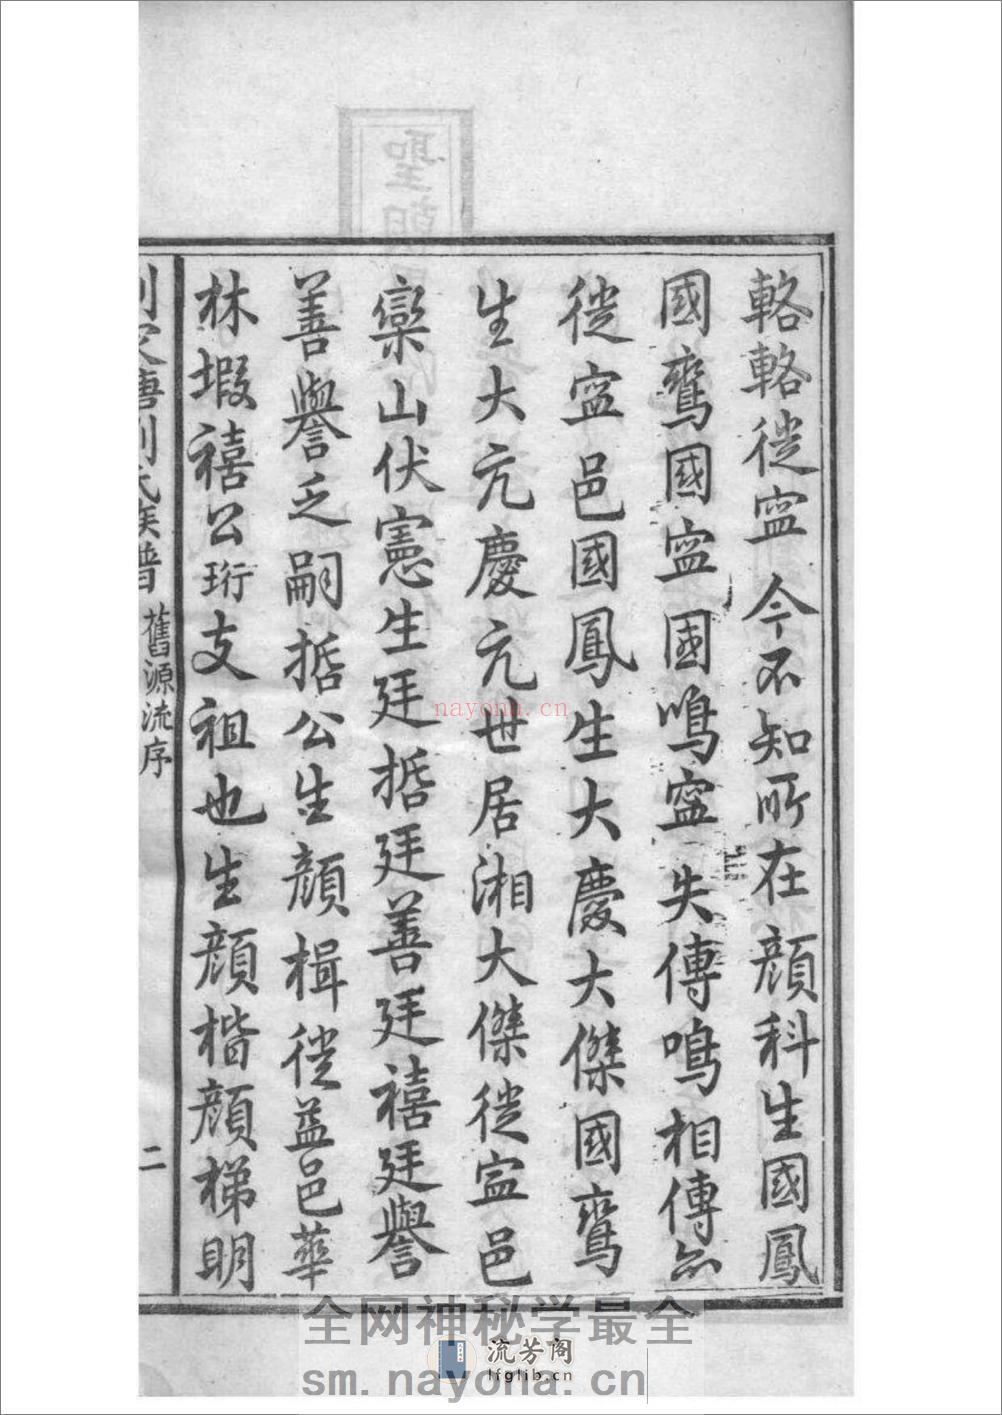 輅輅徙寍今不知所在顔科生國鳳
國鸞國寍國鳴寍失傳鳴相傳亦
徙寍邑國鳳生大慶大傑國鸞
生大亢慶亢世居湘大傑徙寍邑
欒山伏憲生廷悊廷善廷禧廷譽
善譽乏嗣悊公生顔楫徙益邑華
林塅禧公珩支祖也生顔楷顔梯明
唐劉氏族譜
舊源流序
二
聖朝
nayona.cn
全网神秘学最全
流芳阁
lfglib.cn
sm.nayona.cn